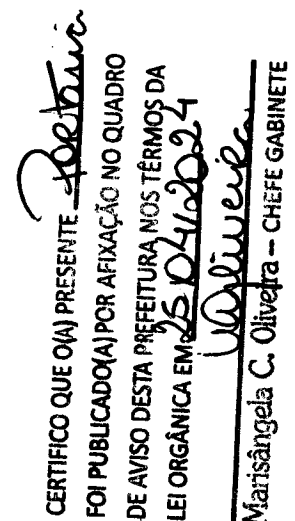 CERTIFICO QUE O(A) PRESENTE Portaria
FOI PUBLICADO(A) POR AFIXAÇÃO NO QUADRO
DE AVISO DESTA PREFEITURA NOS TÊRMOS DA
LEI ORGÂNICA EM 25/04/2024
MOliveira
Marisângela C. Oliveira – CHEFE GABINETE